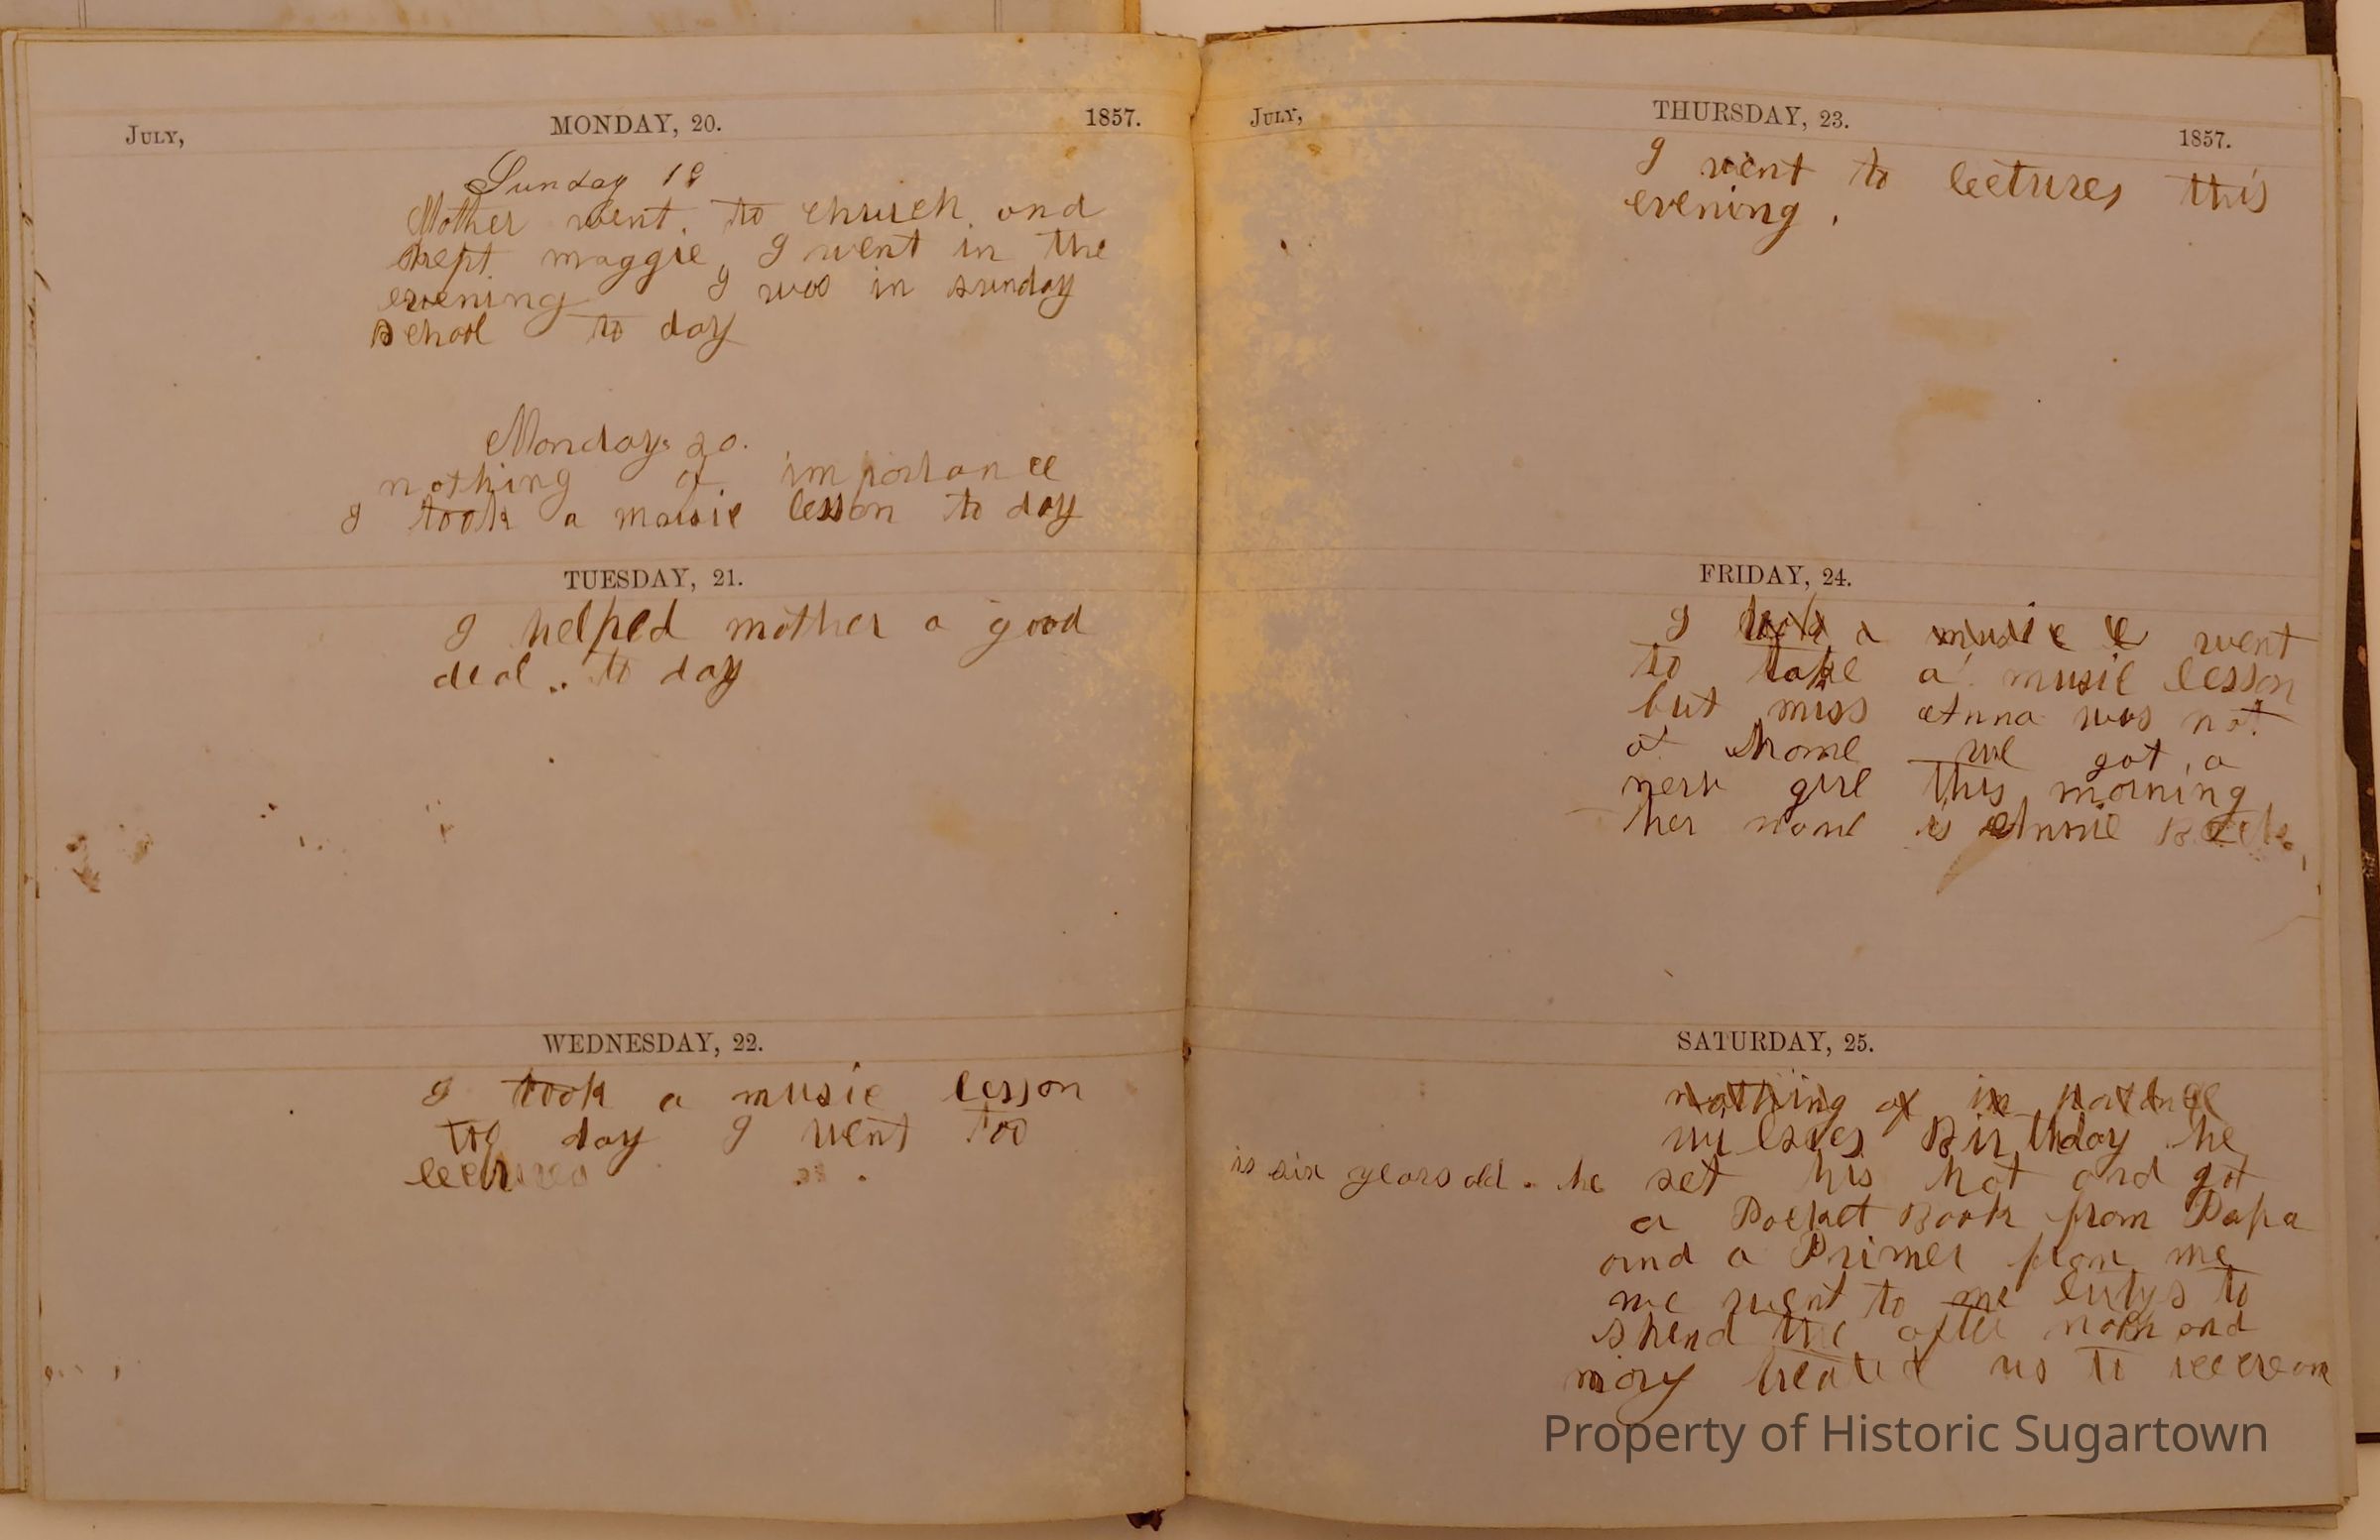 July,
MONDAY, 20.
1857.
Sunday 19
Mother went to chruch and
kept maggie I went in the
evening I was in sunday
School to day
Monday 20.
nothing of importance
I took a music lesson to day
TUESDAY, 21.
I helped mother a good
deal .. to day
WEDNESDAY, 22.
I took a music lesson
to day I went too
lectures
July,
THURSDAY, 23.
1857.
I went to lectures this
evening.
FRIDAY, 24.
I took a music went
to take a music lesson
but miss Anna was not
at home we got a
new girl this morning
her name is Annie
SATURDAY, 25.
nothing of
Birthday he
is six years old. he set his hat and got
a Pocket Book from Papa
and a Primer from me
we went to to
spend the after noon and
mary treated us to icecream
Property of Historic Sugartown